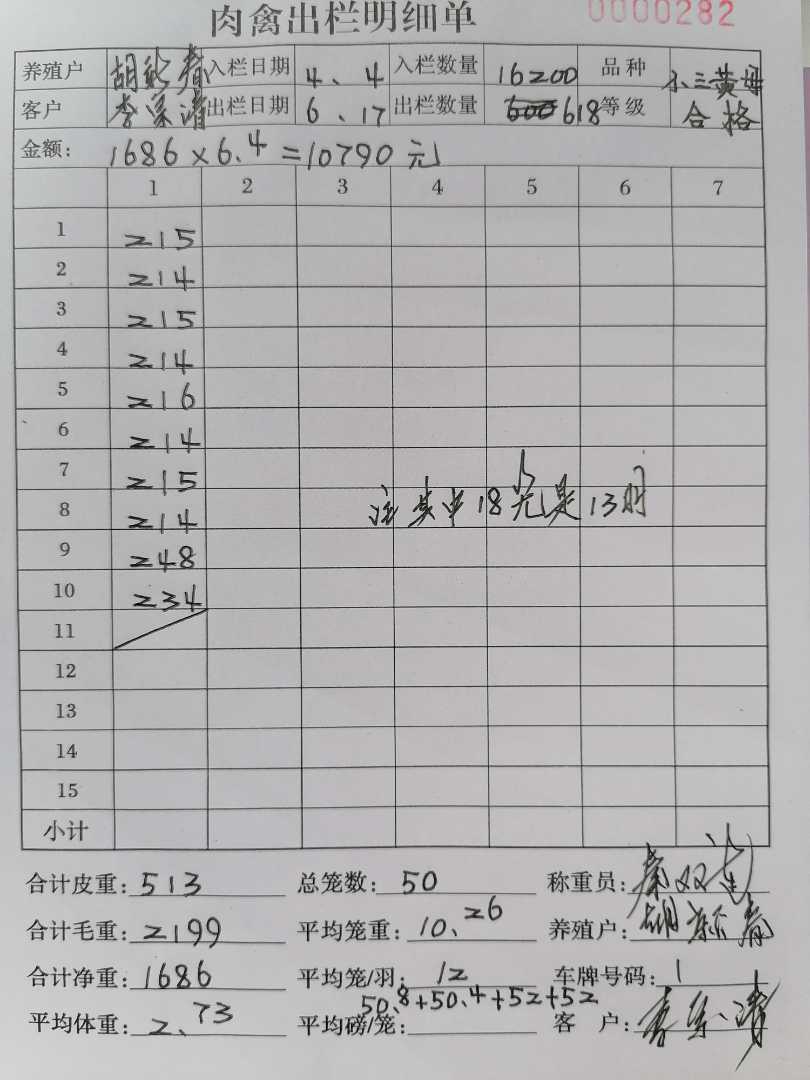 肉禽出栏明细单
0000282
养殖户 胡 春 入栏日期 4、4 入栏数量 16200 品种 小三黄母
客户 李 清 出栏日期 6、17 出栏数量 618 等级 合格
金额: 1686×6.4=10790元
1 2 3 4 5 6 7
1 215
2 214
3 215
4 214
5 216
6 214
7 215
8 214
注其中18元是13时
9 248
10 234
11
12
13
14
15
小计
合计皮重: 513 总笼数: 50 称重员: 秦双
合计毛重: 2199 平均笼重: 10.26 养殖户: 胡 春
合计净重: 1686 平均笼/羽: 12 车牌号码: 1
平均体重: 2.73 平均磅/笼: 50.8+50.4+52+52 客 户: 李 清